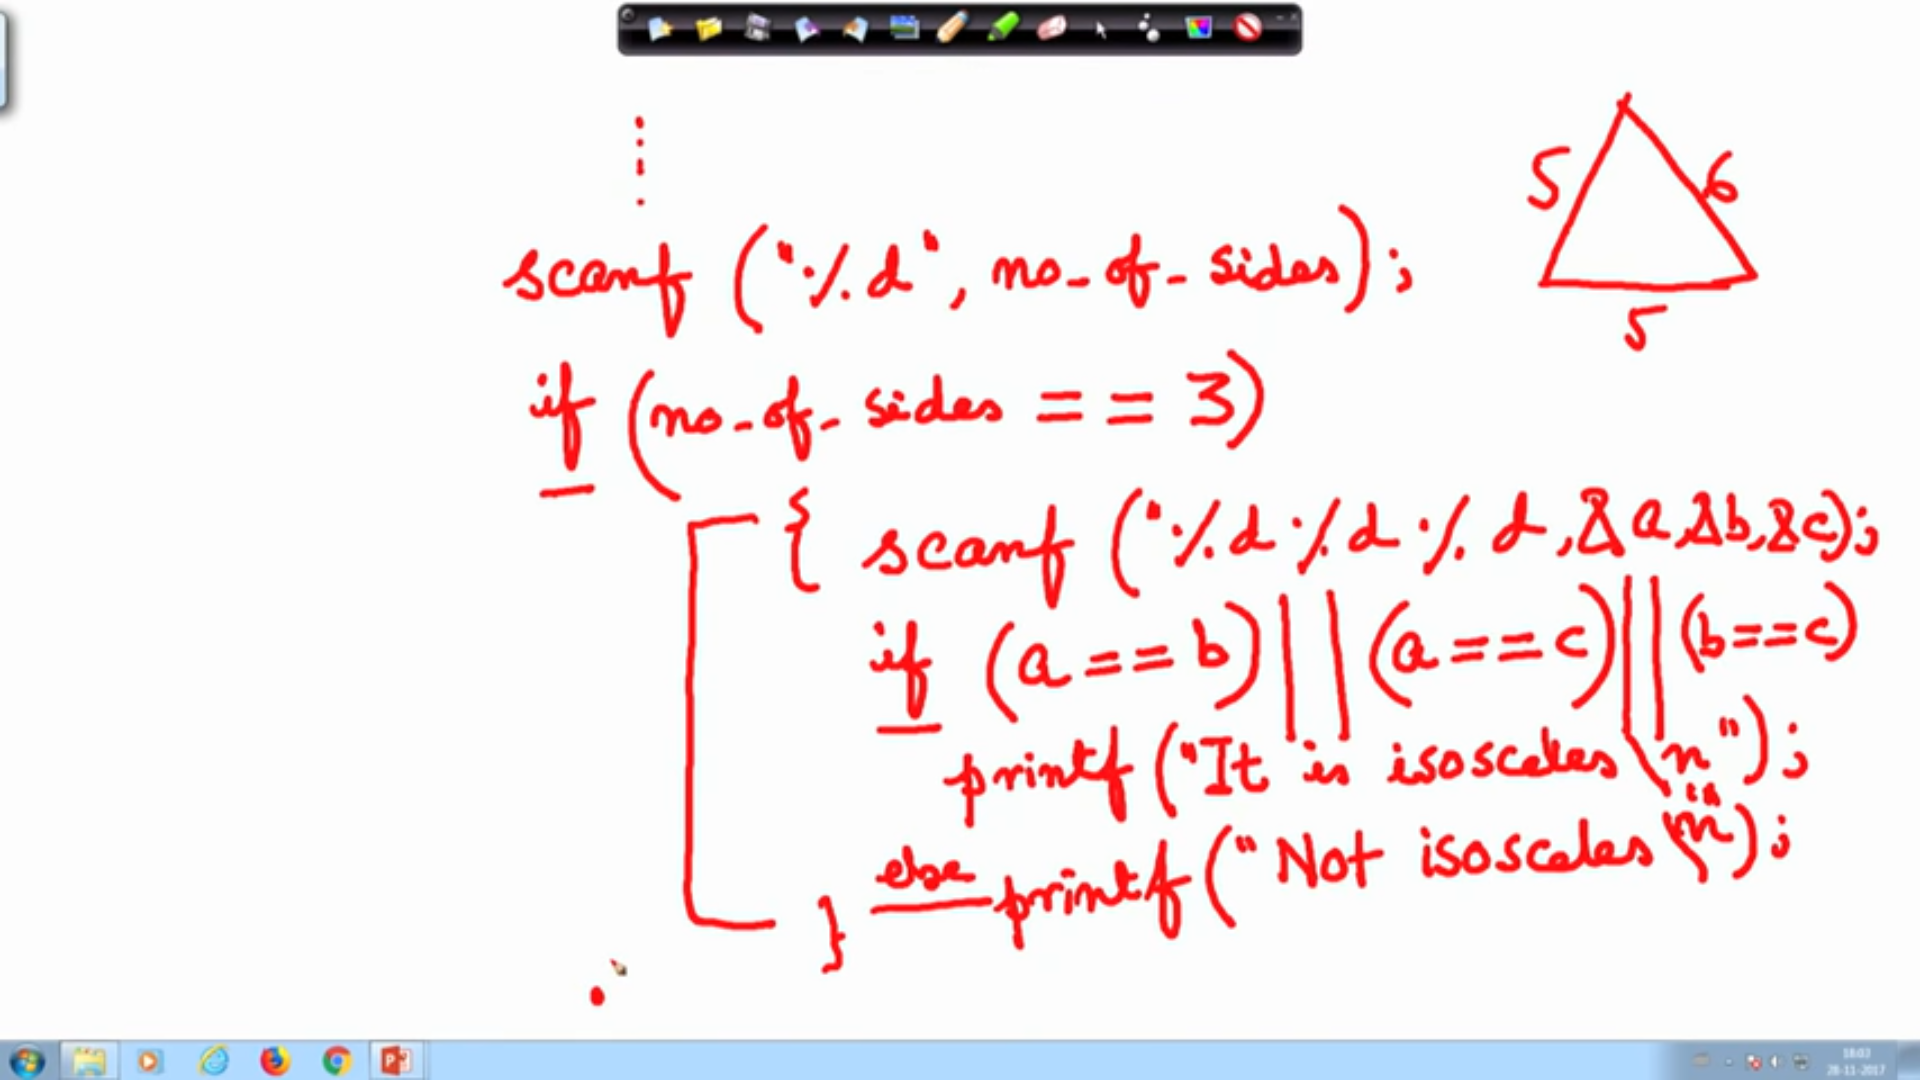 scanf ("%d", no_of_sides);
if (no_of_sides == 3)
{ scanf ("%d %d %d, &a, &b, &c);
if (a == b) || (a == c) || (b == c)
printf ("It is isosceles \n");
else printf ("Not isosceles \n");
}
5
6
5
18:03
28-11-2017